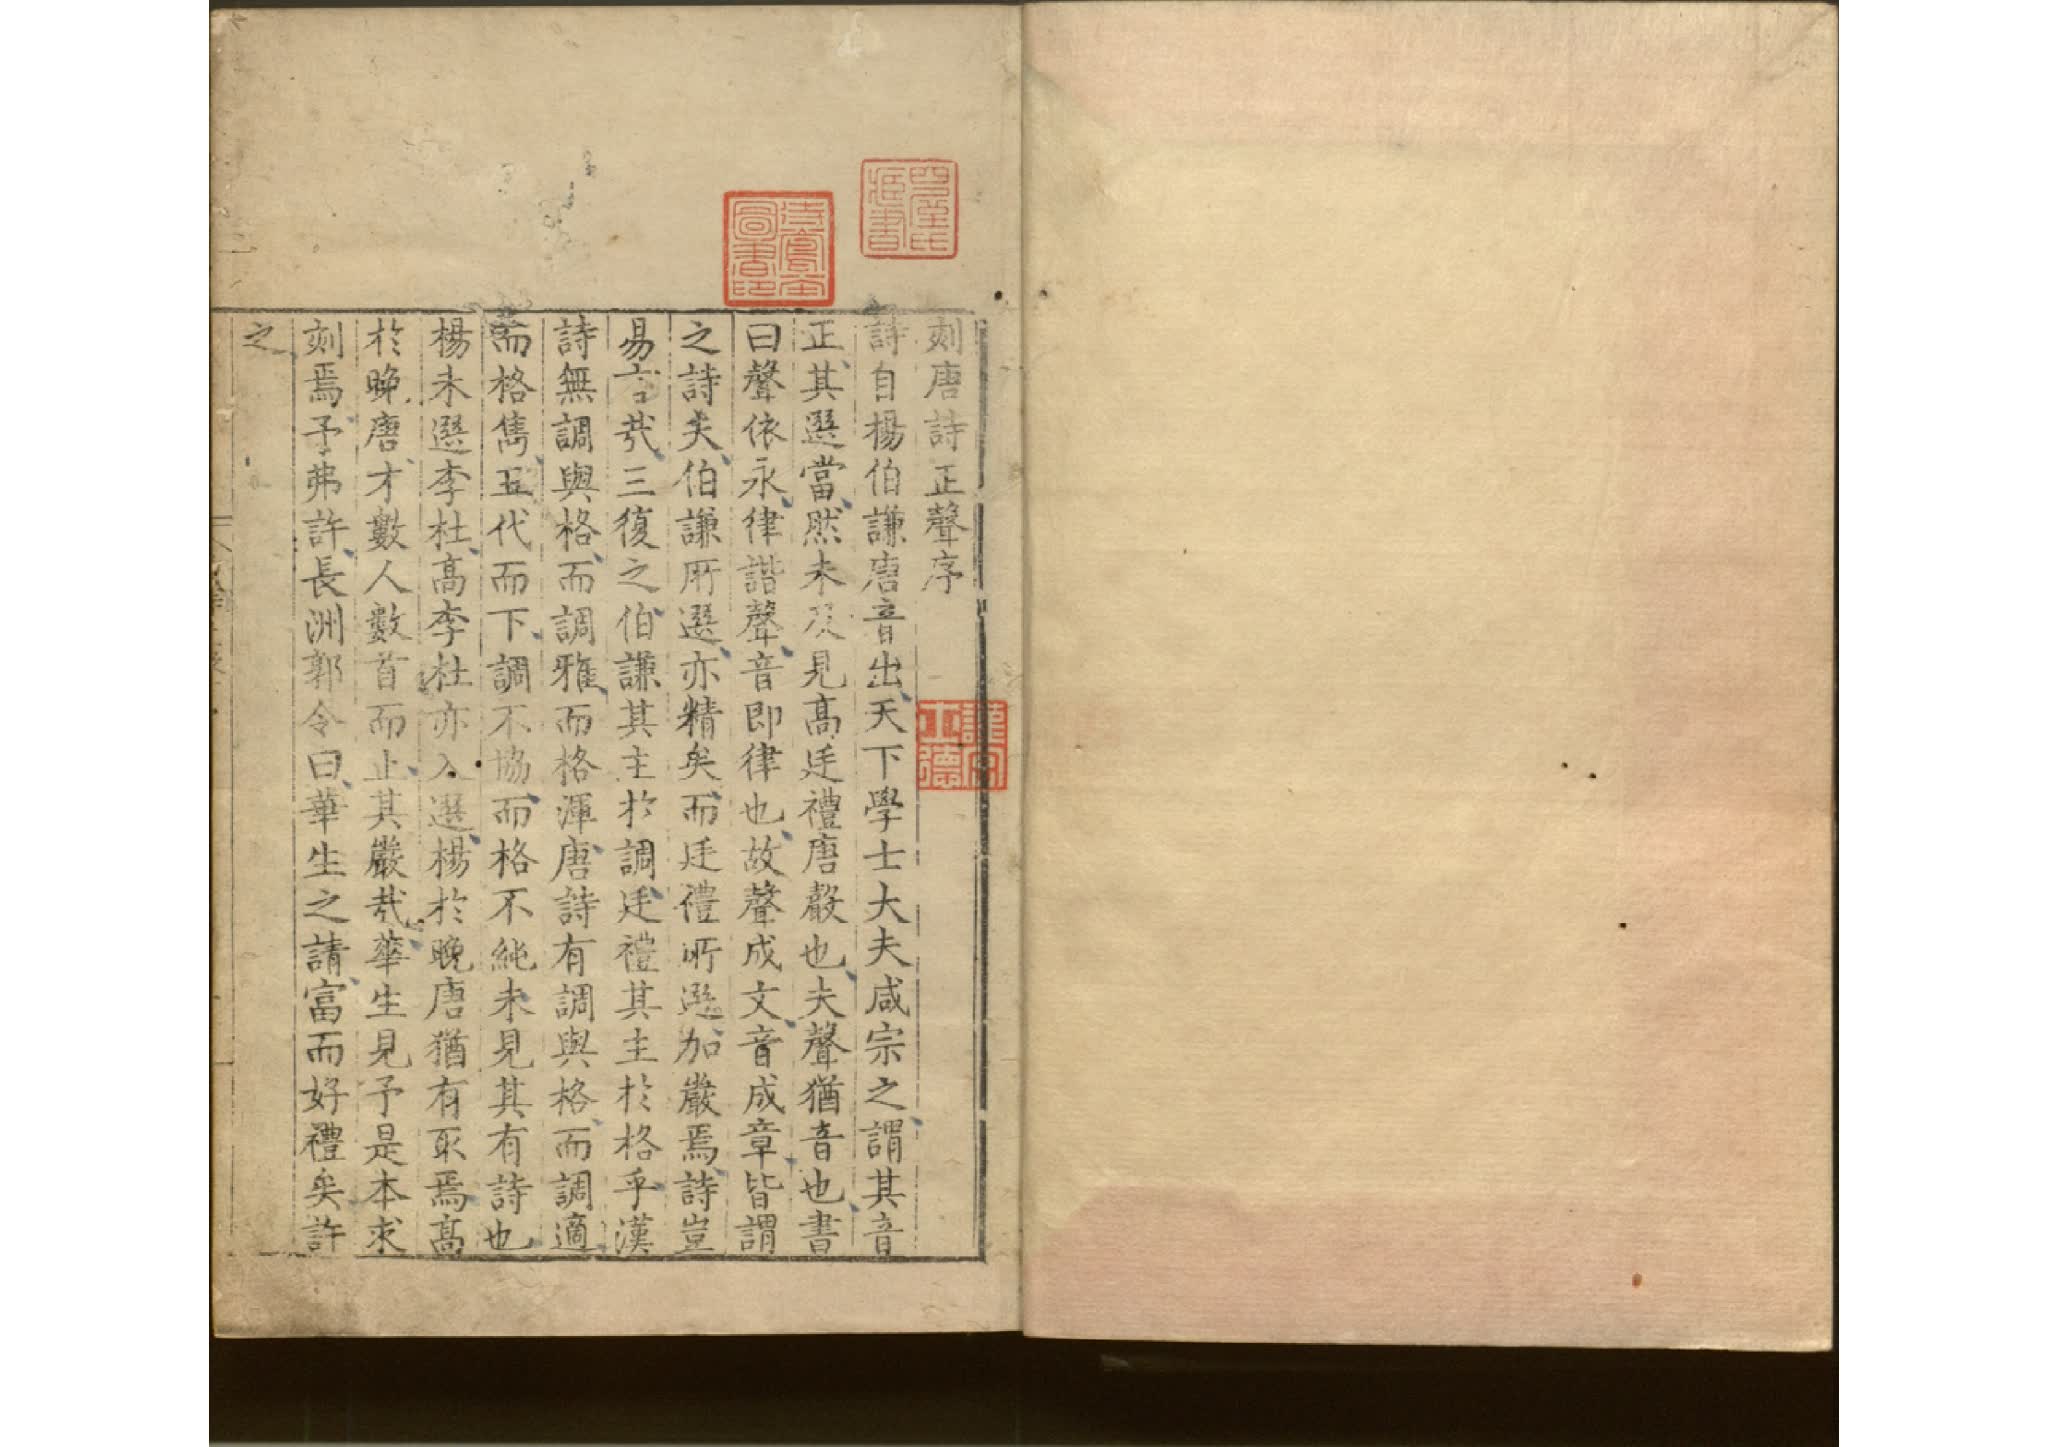 刻唐詩正聲序
詩自楊伯謙唐音出天下學士大夫咸宗之謂其音
正其選當然未及見高廷禮唐聲也夫聲猶音也書
曰聲依永律諧聲音即律也故聲成文音成章皆謂
之詩矣伯謙所選亦精矣而廷禮所選加嚴焉詩豈
易言哉三復之伯謙其主於調廷禮其主於格乎漢
詩無調與格而調雅而格渾唐詩有調與格而調適
而格雋五代而下調不協而格不純未見其有詩也
楊未選李杜高李杜亦入選楊於晚唐猶有取焉高
於晚唐才數人數首而止其嚴哉華生見予是本求
刻焉予弗許長洲郭令曰華生之請富而好禮矣許
之